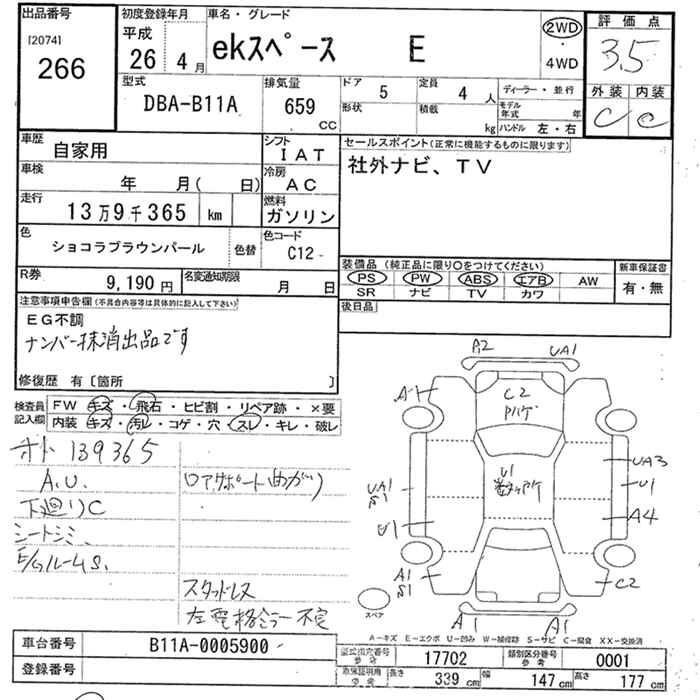 出品番号
[2074]
266
初度登録年月
平成
26 4月
車名・グレード
ekスペース E
2WD
・
4WD
評価点
3.5
外装 内装
C C
型式
DBA-B11A
排気量
659
CC
ドア
5
定員
4人
形状
積載
kg
ディーラー・並行
モデル年式 年
ハンドル 左・右
車歴
自家用
シフト
IAT
車検
年 月( 日)
冷房
AC
走行
13万9千365 km
燃料
ガソリン
色
ショコラブラウンパール
色替
色コード
C12
R券
9,190円
名変通知期限
月 日
セールスポイント(正常に機能するものに限ります)
社外ナビ、TV
装備品(純正品に限り○をつけてください)
PS PW ABS エアB AW
SR ナビ TV カワ
新車保証書
有・無
後日品
注意事項申告欄(不具合内容等は具体的に記入して下さい)
EG不調
ナンバー抹消出品です
修復歴 有[箇所 ]
検査員
記入欄
FW キズ・飛石・ヒビ割・リペア跡・×要
内装 キズ・汚レ・コゲ・穴・スレ・キレ・破レ
139365
A.U.
下廻りC
シートシミ
E/gルームS.
ロアサポート曲がり
スタッドレス
左電格ミラー不良
A2
UA1
A1
C2
U1
UA3
U1
A4
UA1
S1
U1
A1
S1
C2
スペア
A1
A1
A-キズ E-エクボ U-凹み W-補修跡 S-サビ C-腐食 XX-交換済
車台番号
B11A-0005900
登録番号
型式指定番号
参考
17702
類別区分番号
参考
0001
車庫証明用
参考
長さ 339 cm 幅 147 cm 高さ 177 cm